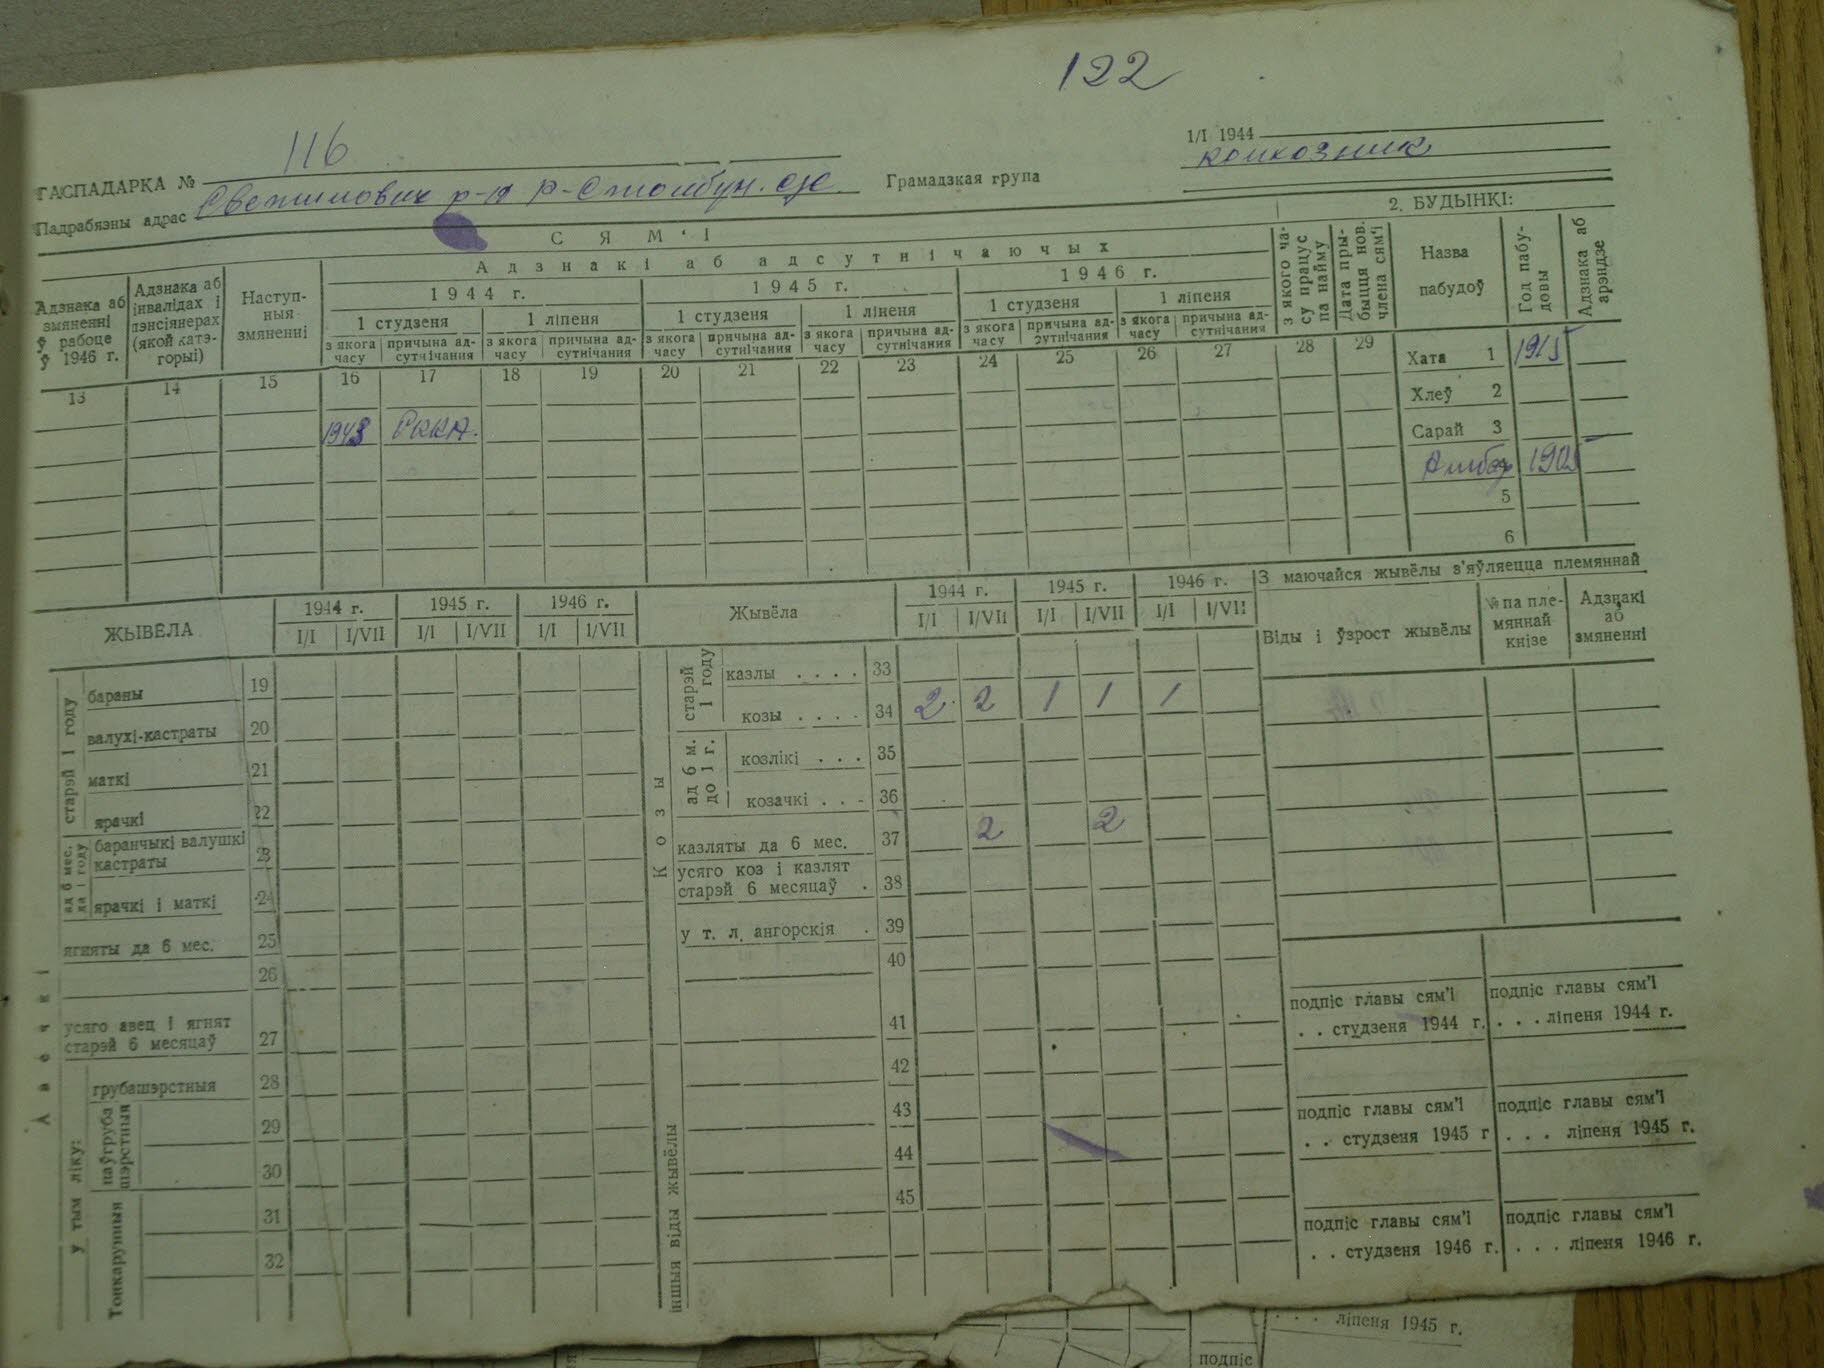 122
1/I 1944
колхозник
ГАСПАДАРКА № 116
Падрабязны адрас
Грамадзкая група
СЯМ'І
2. БУДЫНКІ:
Адзнака аб змяненні ў рабоце ў 1946 г.
Адзнака аб інвалідах і пэнсіянерах (якой катэгорыі)
Наступныя змяненні
Адзнакі аб адсутнічаючых
1944 г.
1945 г.
1946 г.
1 студзеня
1 ліпеня
1 студзеня
1 ліпеня
1 студзеня
1 ліпеня
з якога часу
причына адсутнічання
з якога часу
причына адсутнічання
з якога часу
причына адсутнічання
з якога часу
причына адсутнічання
з якога часу
причына адсутнічання
з якога часу
причына адсутнічання
з якого часу працуе па найму
Дата прыбыцця нов. члена сям'і
Назва пабудоў
Год пабудовы
Адзнака аб арэндзе
13 14 15 16 17 18 19 20 21 22 23 24 25 26 27 28 29
Хата 1 1915
Хлеў 2
1943 РККА.
Сарай 3
Амбар 1905
5
6
ЖЫВЁЛА
1944 г.
1945 г.
1946 г.
I/I I/VII I/I I/VII I/I I/VII
Жывёла
1944 г.
1945 г.
1946 г.
I/I I/VII I/I I/VII I/I I/VII
З маючайся жывёлы з'яўляецца племяннай
Віды і ўзрост жывёлы
№ па племяннай кнізе
Адзнакі аб змяненні
Авечкі
старэй 1 году
бараны 19
валухі-кастраты 20
маткі 21
ярачкі 22
ад 6 мес. да 1 году
баранчыкі валушкі кастраты 23
ярачкі і маткі 24
ягняты да 6 мес. 25
26
усяго авец і ягнят старэй 6 месяцаў 27
у тым ліку:
грубашэрстныя 28
паўгрубашэрстныя
29
30
Тонкарунныя
31
32
Козы
старэй 1 году
казлы . . . . 33
козы . . . . 34 2 2 1 1 1
ад 6 м. до 1 г.
козлікі . . . 35
козачкі . . . 36
казляты да 6 мес. 37 2 2
усяго коз і казлят старэй 6 месяцаў . 38
у т. л. ангорскія . 39
40
іншыя віды жывёлы
41
42
43
44
45
подпіс главы сям'і
. . студзеня 1944 г.
подпіс главы сям'і
. . . ліпеня 1944 г.
подпіс главы сям'і
. . студзеня 1945 г
подпіс главы сям'і
. . . ліпеня 1945 г.
подпіс главы сям'і
. . студзеня 1946 г.
подпіс главы сям'і
. . . ліпеня 1946 г.
. . . ліпеня 1945 г.
подпіс